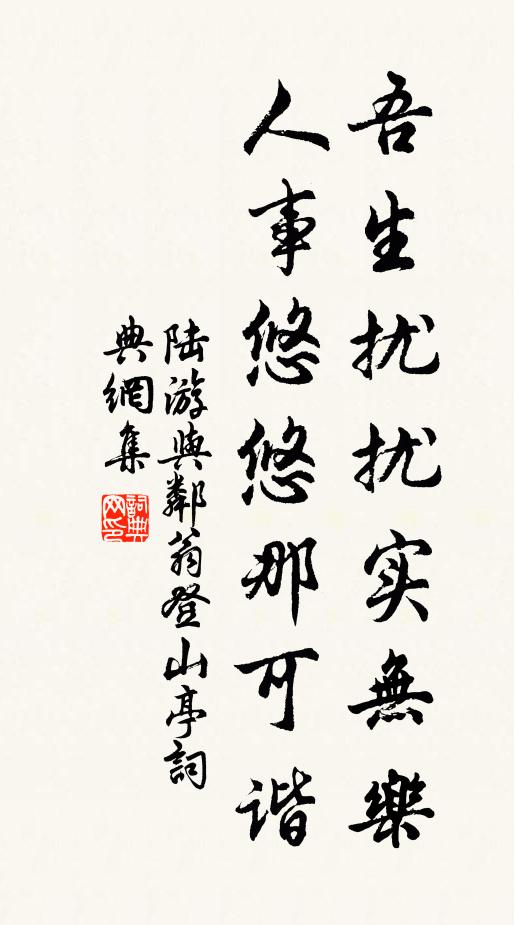 吾生扰扰实無樂
人事悠悠那可谐
陆游與鄰翁登山亭詞
典網集
詞典网印